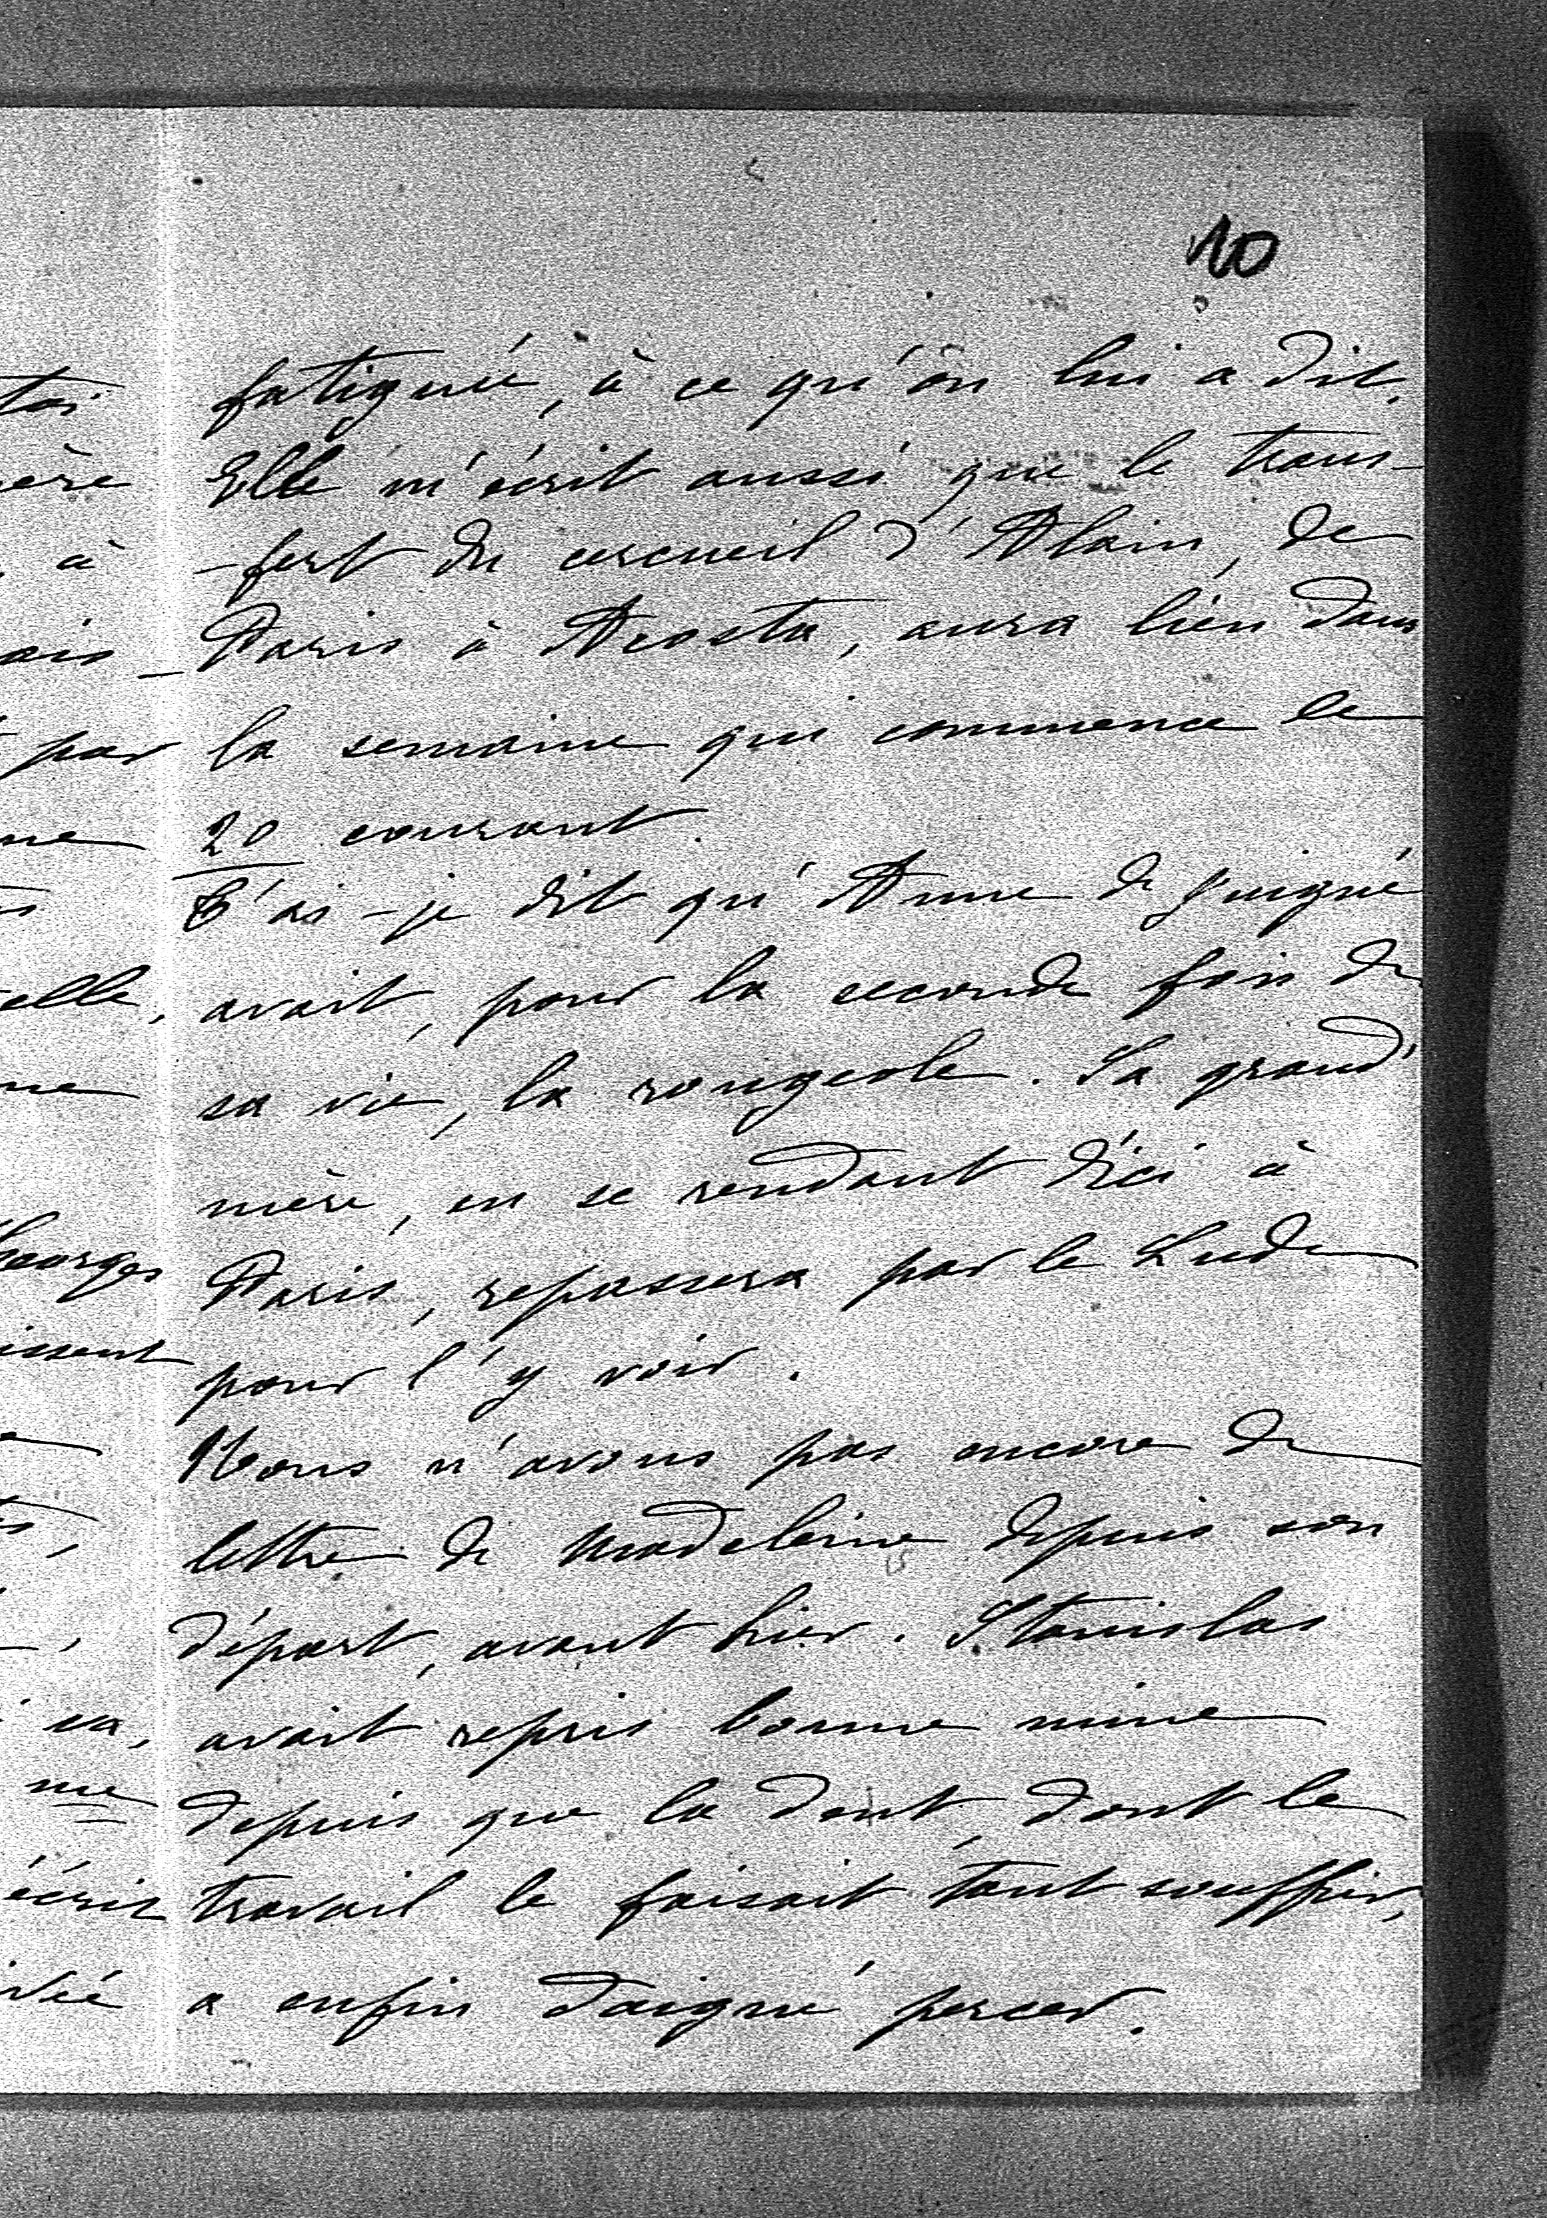 10
fatiguée, à ce qu'on lui a dit.
Elle m'écrit aussi que le trans-
-fert du cercueil d'Alain, de
Paris à Acosta, aura lieu dans
la semaine qui commence le
20 courant.
T'ai-je dit qu'Anne de Juigné
avait, pour la seconde fois de
sa vie, la rougeole. Sa grand'
mère, en se rendant d'ici à
Paris, repassera par le Lude
pour l'y voir.
Nous n'avons pas encore de
lettre de Madeleine depuis son
départ, avant hier. Stanislas
avait repris bonne mine
depuis que la dent, dont le
travail le faisait tant souffrir,
a enfin daigné percer.
toi
à
par
elle,
Georges
sa,
me
écris